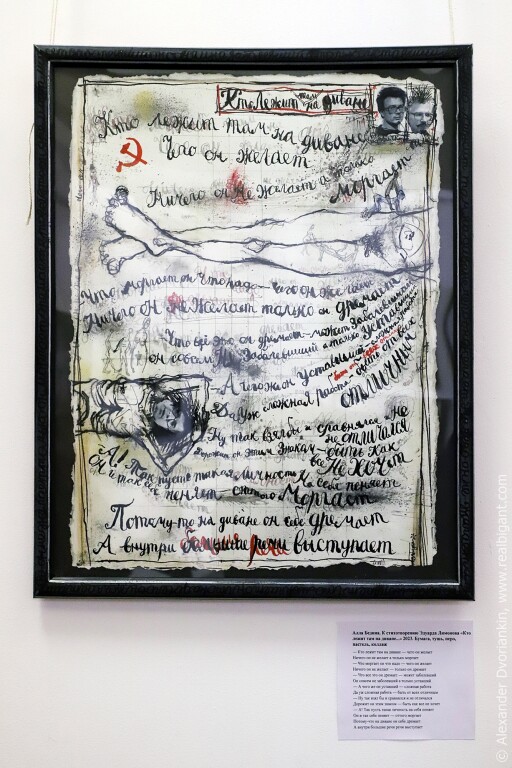 Кто лежит там на диване
Кто лежит там на диване
Чего он желает
Ничего он не желает а только
моргает
Что моргает он что надо — чего он желает
Ничего он не желает только он дремлет
Что всё это он дремлет — может заболевший
он совсем не заболевший а только уставший
— А чего ж он уставший
сложная работа
Да уж сложная работа быть от всех
отличным
— Ну так взял бы и сравнялся и не
не отличался
Дорожит он этим знаком — быть как
все не хочет
А! Так пусть такая личность на себя пеняет
Он и так себе пеняет — оттого моргает
Потому-то на диване он себе дремлет
А внутри большие речи выступает
Алла Бедина. К стихотворению Эдуарда Лимонова «Кто
лежит там на диване...» 2023. Бумага, тушь, перо,
пастель, коллаж
— Кто лежит там на диване — чего он желает
Ничего он не желает а только моргает
— Что моргает он что надо — чего он желает
Ничего он не желает — только он дремлет
— Что всё это он дремлет — может заболевший
Он совсем не заболевший а только уставший
— А чего же он уставший — сложная работа
Да уж сложная работа — быть от всех отличным
— Ну так взял бы и сравнялся и не отличался
Дорожит он этим знаком — быть как все не хочет
— А! Так пусть такая личность на себя пеняет
Он и так себе пеняет — оттого моргает
Потому-что на диване он себе дремлет
А внутри большие речи выступает
© Alexander Dvoriankin, www.realbigant.com